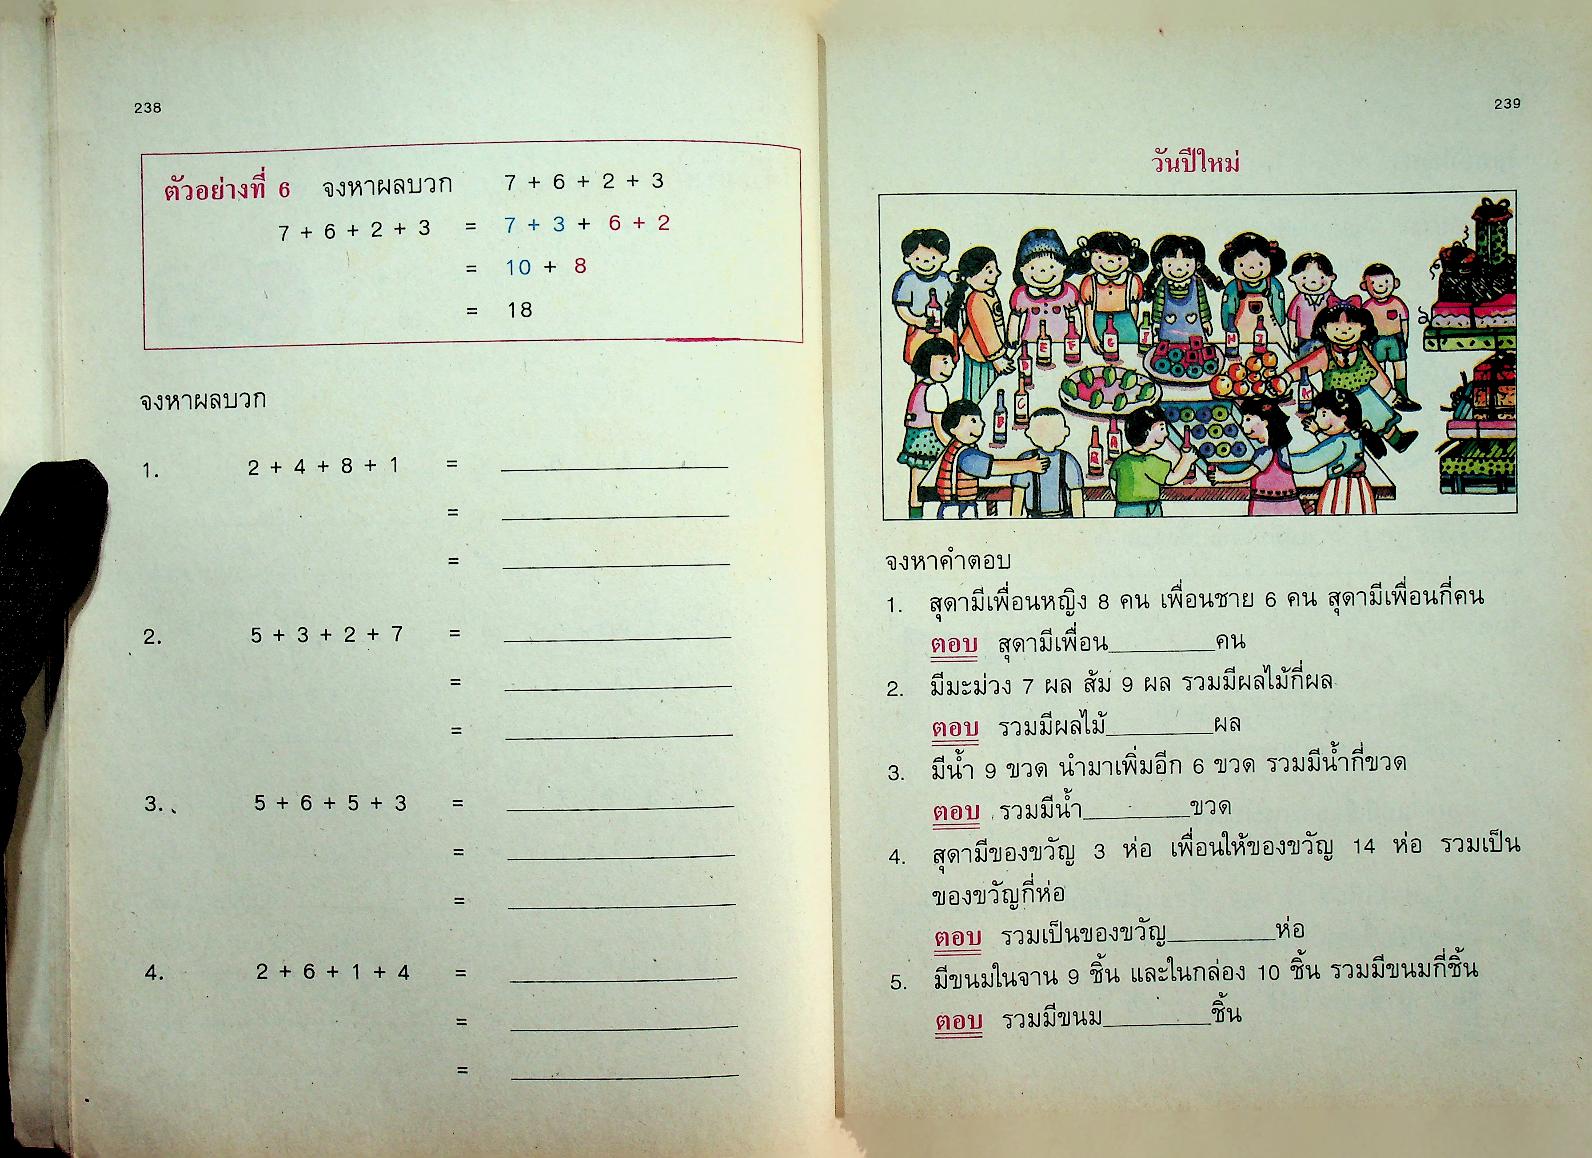 238
ตัวอย่างที่ 6 จงหาผลบวก 7 + 6 + 2 + 3
7 + 6 + 2 + 3 = 7 + 3 + 6 + 2
= 10 + 8
= 18
จงหาผลบวก
1. 2 + 4 + 8 + 1 = ________
= ________
= ________
2. 5 + 3 + 2 + 7 = ________
= ________
= ________
3. 5 + 6 + 5 + 3 = ________
= ________
= ________
4. 2 + 6 + 1 + 4 = ________
= ________
= ________
239
วันปีใหม่
จงหาคำตอบ
1. สุดามีเพื่อนหญิง 8 คน เพื่อนชาย 6 คน สุดามีเพื่อนกี่คน
ตอบ สุดามีเพื่อน________คน
2. มีมะม่วง 7 ผล ส้ม 9 ผล รวมมีผลไม้กี่ผล
ตอบ รวมมีผลไม้________ผล
3. มีน้ำ 9 ขวด นำมาเพิ่มอีก 6 ขวด รวมมีน้ำกี่ขวด
ตอบ รวมมีน้ำ________ขวด
4. สุดามีของขวัญ 3 ห่อ เพื่อนให้ของขวัญ 14 ห่อ รวมเป็น
ของขวัญกี่ห่อ
ตอบ รวมเป็นของขวัญ________ห่อ
5. มีขนมในจาน 9 ชิ้น และในกล่อง 10 ชิ้น รวมมีขนมกี่ชิ้น
ตอบ รวมมีขนม________ชิ้น